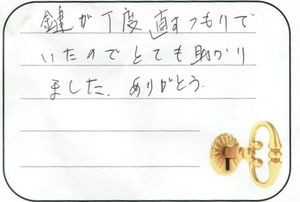 鍵が丁度直すつもりで
いたのでとても助かり
ました. ありがとう.